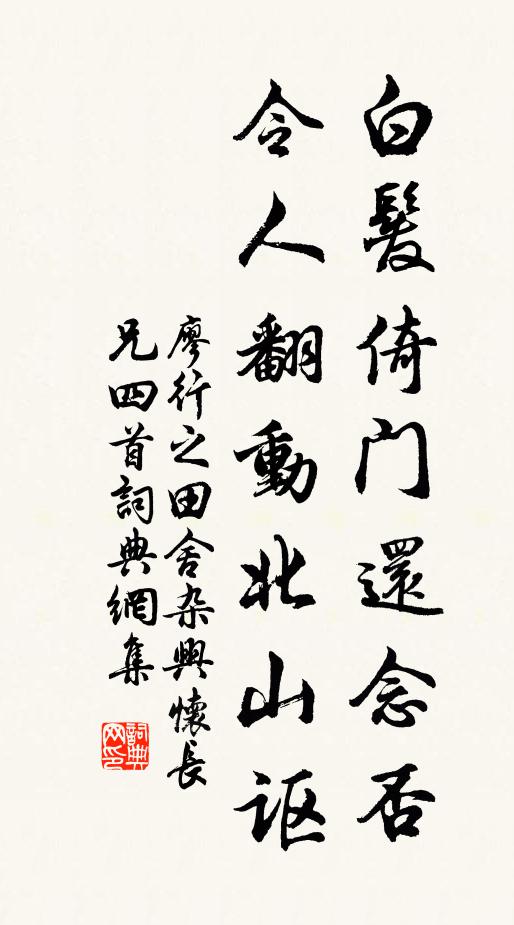 白髮倚門還念否
令人翻動北山讴
廖行之田舍杂興懷長
兄四首詞典網集
詞典
网印